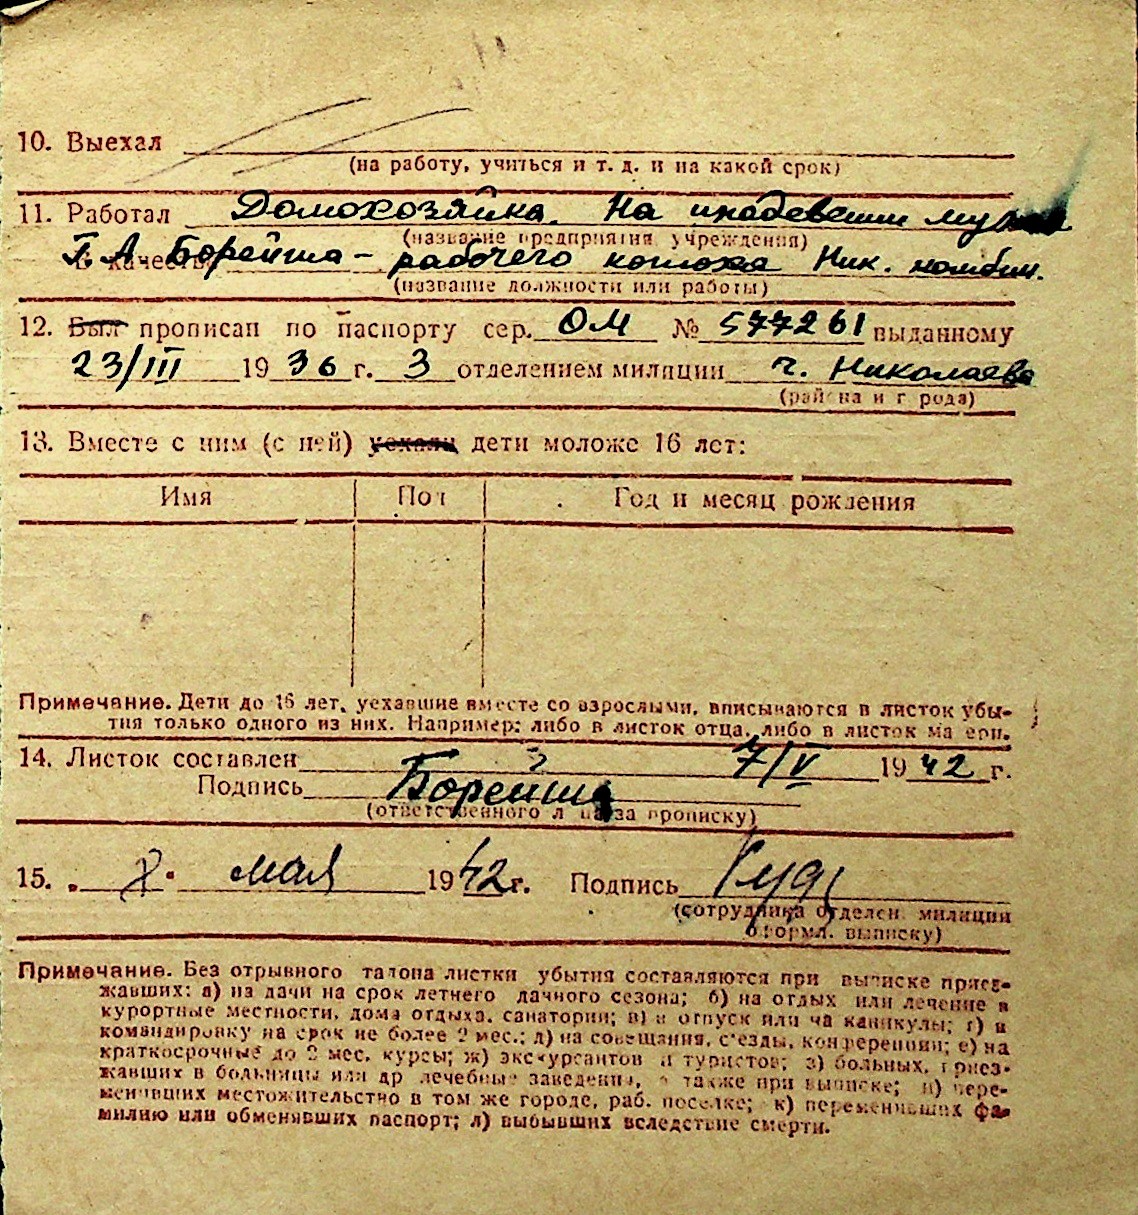 10. Выехал
(на работу, учиться и т. д. и на какой срок)
11. Работал Домохозяйка. На иждевении мужа
(название предприятия учреждения)
В качестве Г. А. Борейша – рабочего конюха Ник. комбин.
(название должности или работы)
12. Был прописан по паспорту сер. ОМ № 577261 выданному
23/III 1936 г. 3 отделением милиции г. Николаева
(района и города)
13. Вместе с ним (с ней) уехали дети моложе 16 лет:
Имя Пол Год и месяц рождения
Примечание. Дети до 16 лет, уехавшие вместе со взрослыми, вписываются в листок убы-
тия только одного из них. Например: либо в листок отца, либо в листок матери.
14. Листок составлен 7/V 1942 г.
Подпись Борейша
(ответственного лица за прописку)
15. 8. мая 1942 г. Подпись
(сотрудника отделен. милиции
оформл. выписку)
Примечание. Без отрывного талона листки убытия составляются при выписке приез-
жавших: а) на дачи на срок летнего дачного сезона; б) на отдых или лечение в
курортные местности, дома отдыха, санатории; в) в отпуск или на каникулы; г) в
командировку на срок не более 2 мес.; д) на совещания, съезды, конференции; е) на
краткосрочные до 2 мес. курсы; ж) экскурсантов и туристов; з) больных, приез-
жавших в больницы или др лечебные заведения, а также при выписке; и) пере-
менивших местожительство в том же городе, раб. поселке; к) переменивших фа-
милию или обменявших паспорт; л) выбывших вследствие смерти.